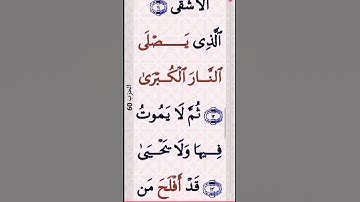 الأشقى ١١
ٱلَّذِى يَصۡلَى
ٱلنَّارَ ٱلۡكُبۡرَىٰ
١٢ ثُمَّ لَا يَمُوتُ
فِيهَا وَلَا يَحۡيَىٰ
١٣ قَدۡ أَفۡلَحَ مَن
الحزب 60